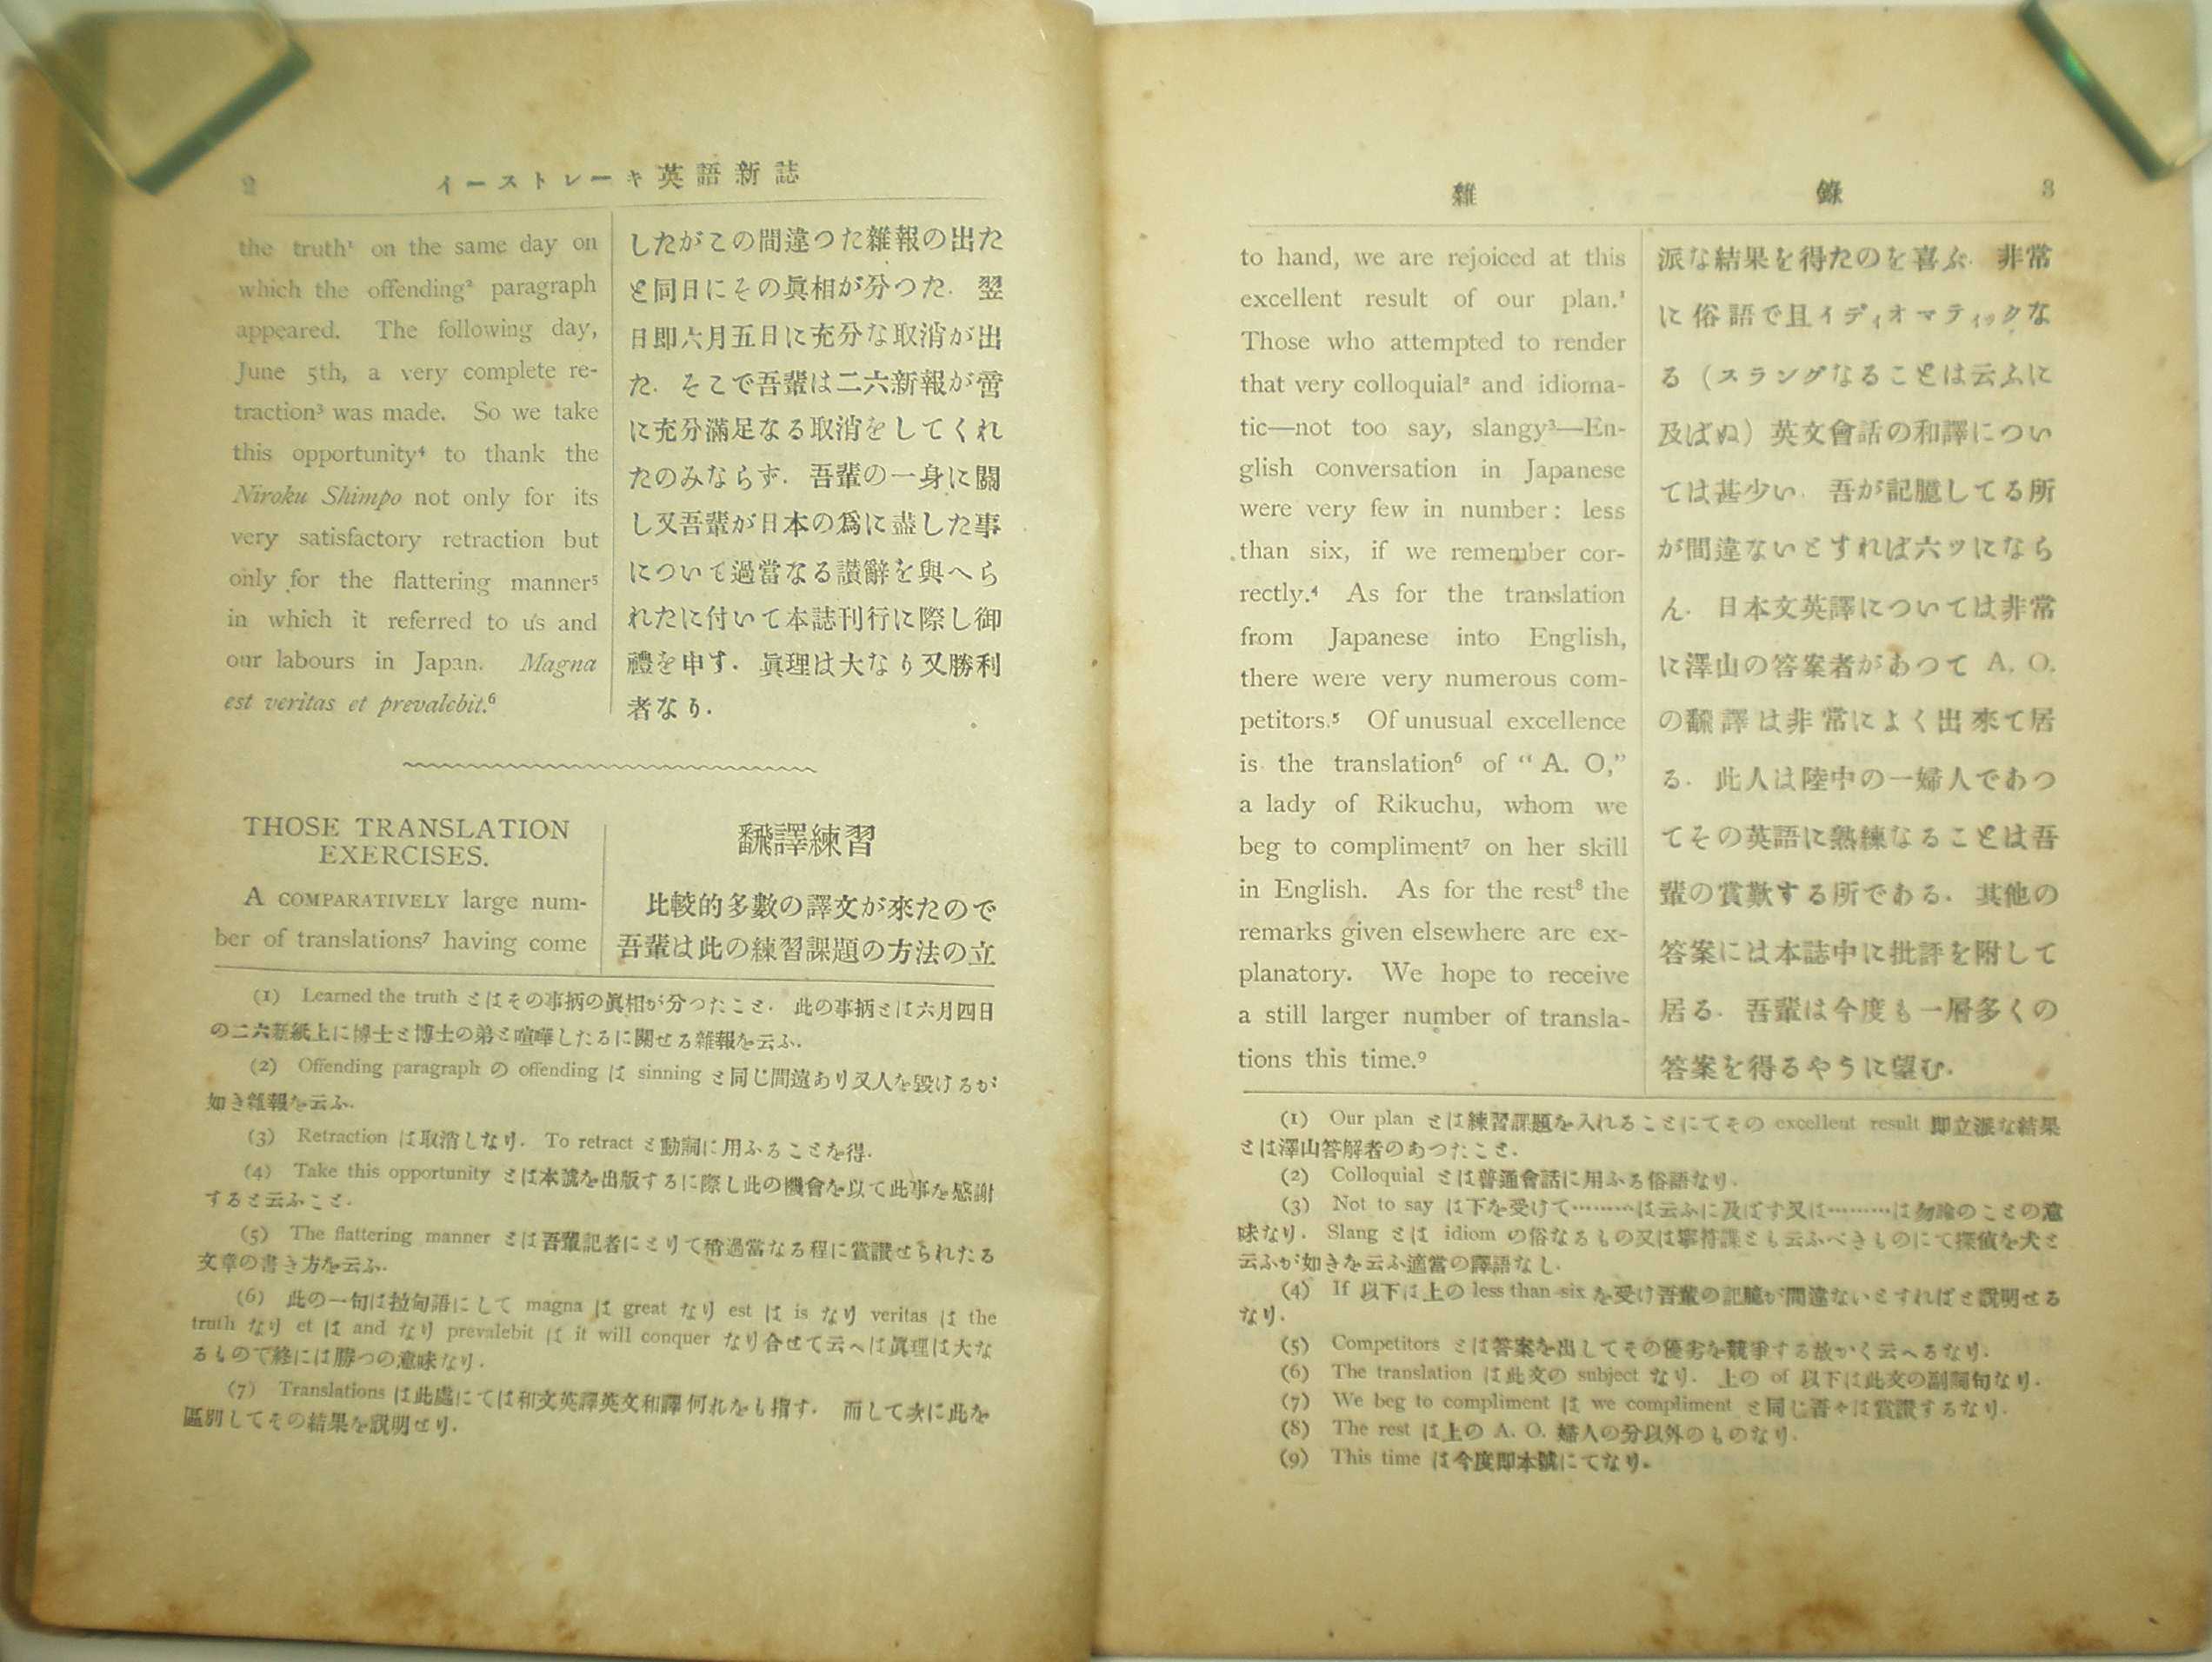 2
イーストレーキ英語新誌
the truth¹ on the same day on
which the offending² paragraph
appeared. The following day,
June 5th, a very complete re-
traction³ was made. So we take
this opportunity⁴ to thank the
Niroku Shimpo not only for its
very satisfactory retraction but
only for the flattering manner⁵
in which it referred to us and
our labours in Japan. Magna
est veritas et prevalebit.⁶
したがこの間違つた雜報の出た
と同日にその眞相が分つた. 翌
日即六月五日に充分な取消が出
た. そこで吾輩は二六新報が啻
に充分滿足なる取消をしてくれ
たのみならず. 吾輩の一身に關
し又吾輩が日本の爲に盡した事
について過當なる讃辭を與へら
れたに付いて本誌刊行に際し御
禮を申す. 眞理は大なり又勝利
者なり.
THOSE TRANSLATION
EXERCISES.
A COMPARATIVELY large num-
ber of translations⁷ having come
飜譯練習
比較的多數の譯文が來たので
吾輩は此の練習課題の方法の立
(1) Learned the truth とはその事柄の眞相が分つたこと. 此の事柄とは六月四日
の二六新紙上に博士と博士の弟と喧嘩したるに關せる雜報を云ふ.
(2) Offending paragraph の offending は sinning と同じ間違あり又人を毀けるが
如き雜報を云ふ.
(3) Retraction は取消しなり. To retract と動詞に用ふることを得.
(4) Take this opportunity とは本號を出版するに際し此の機會を以て此事を感謝
すると云ふこと.
(5) The flattering manner とは吾輩記者にとりて稍過當なる程に賞讃せられたる
文章の書き方を云ふ.
(6) 此の一句は拉甸語にして magna は great なり est は is なり veritas は the
truth なり et は and なり prevalebit は it will conquer なり合せて云へは眞理は大な
るもので終には勝つの意味なり.
(7) Translations は此處にては和文英譯英文和譯何れをも指す. 而して次に此を
區別してその結果を說明せり.
雜錄
3
to hand, we are rejoiced at this
excellent result of our plan.¹
Those who attempted to render
that very colloquial² and idioma-
tic—not too say, slangy³—En-
glish conversation in Japanese
were very few in number: less
than six, if we remember cor-
rectly.⁴ As for the translation
from Japanese into English,
there were very numerous com-
petitors.⁵ Of unusual excellence
is the translation⁶ of “A. O,”
a lady of Rikuchu, whom we
beg to compliment⁷ on her skill
in English. As for the rest⁸ the
remarks given elsewhere are ex-
planatory. We hope to receive
a still larger number of transla-
tions this time.⁹
派な結果を得たのを喜ぶ. 非常
に俗語で且イディオマティックな
る(スラングなることは云ふに
及ばぬ)英文會話の和譯につい
ては甚少い. 吾が記臆してる所
が間違ないとすれば六ツになら
ん. 日本文英譯については非常
に澤山の答案者があつて A. O.
の飜譯は非常によく出來て居
る. 此人は陸中の一婦人であつ
てその英語に熟練なることは吾
輩の賞歎する所である. 其他の
答案には本誌中に批評を附して
居る. 吾輩は今度も一層多くの
答案を得るやうに望む.
(1) Our plan とは練習課題を入れることにてその excellent result 即立派な結果
とは澤山答解者のあつたこと.
(2) Colloquial とは普通會話に用ふる俗語なり.
(3) Not to say は下を受けて………は云ふに及ばす又は………は勿論のことの意
味なり. Slang とは idiom の俗なるもの又は寧符諜とも云ふべきものにて探偵を犬と
云ふが如きを云ふ適當の譯語なし.
(4) If 以下は上の less than six を受け吾輩の記臆が間違ないとすればと說明せる
なり.
(5) Competitors とは答案を出してその優劣を競爭する故かく云へるなり.
(6) The translation は此文の subject なり. 上の of 以下は此文の副詞句なり.
(7) We beg to compliment は we compliment と同じ吾々は賞讃するなり.
(8) The rest は上の A. O. 婦人の分以外のものなり.
(9) This time は今度即本號にてなり.